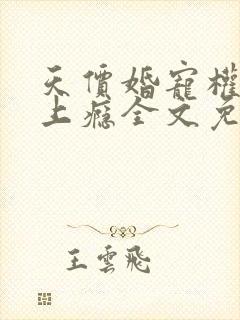 天價婚寵權
上癮全文免
王雲飛